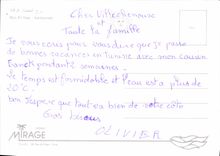 Cher Villechenouse
et
Toute ta famille
Je vous écris pour vous dire que je passe
de bonnes vacances en Tunisie avec mon cousin
pendant 2 semaines.
Le temps est formidable et l'eau est à plus de
20°C.
bon j'espère que tout va bien de votre côté
Gros bisous
OLIVIER
MIRAGE